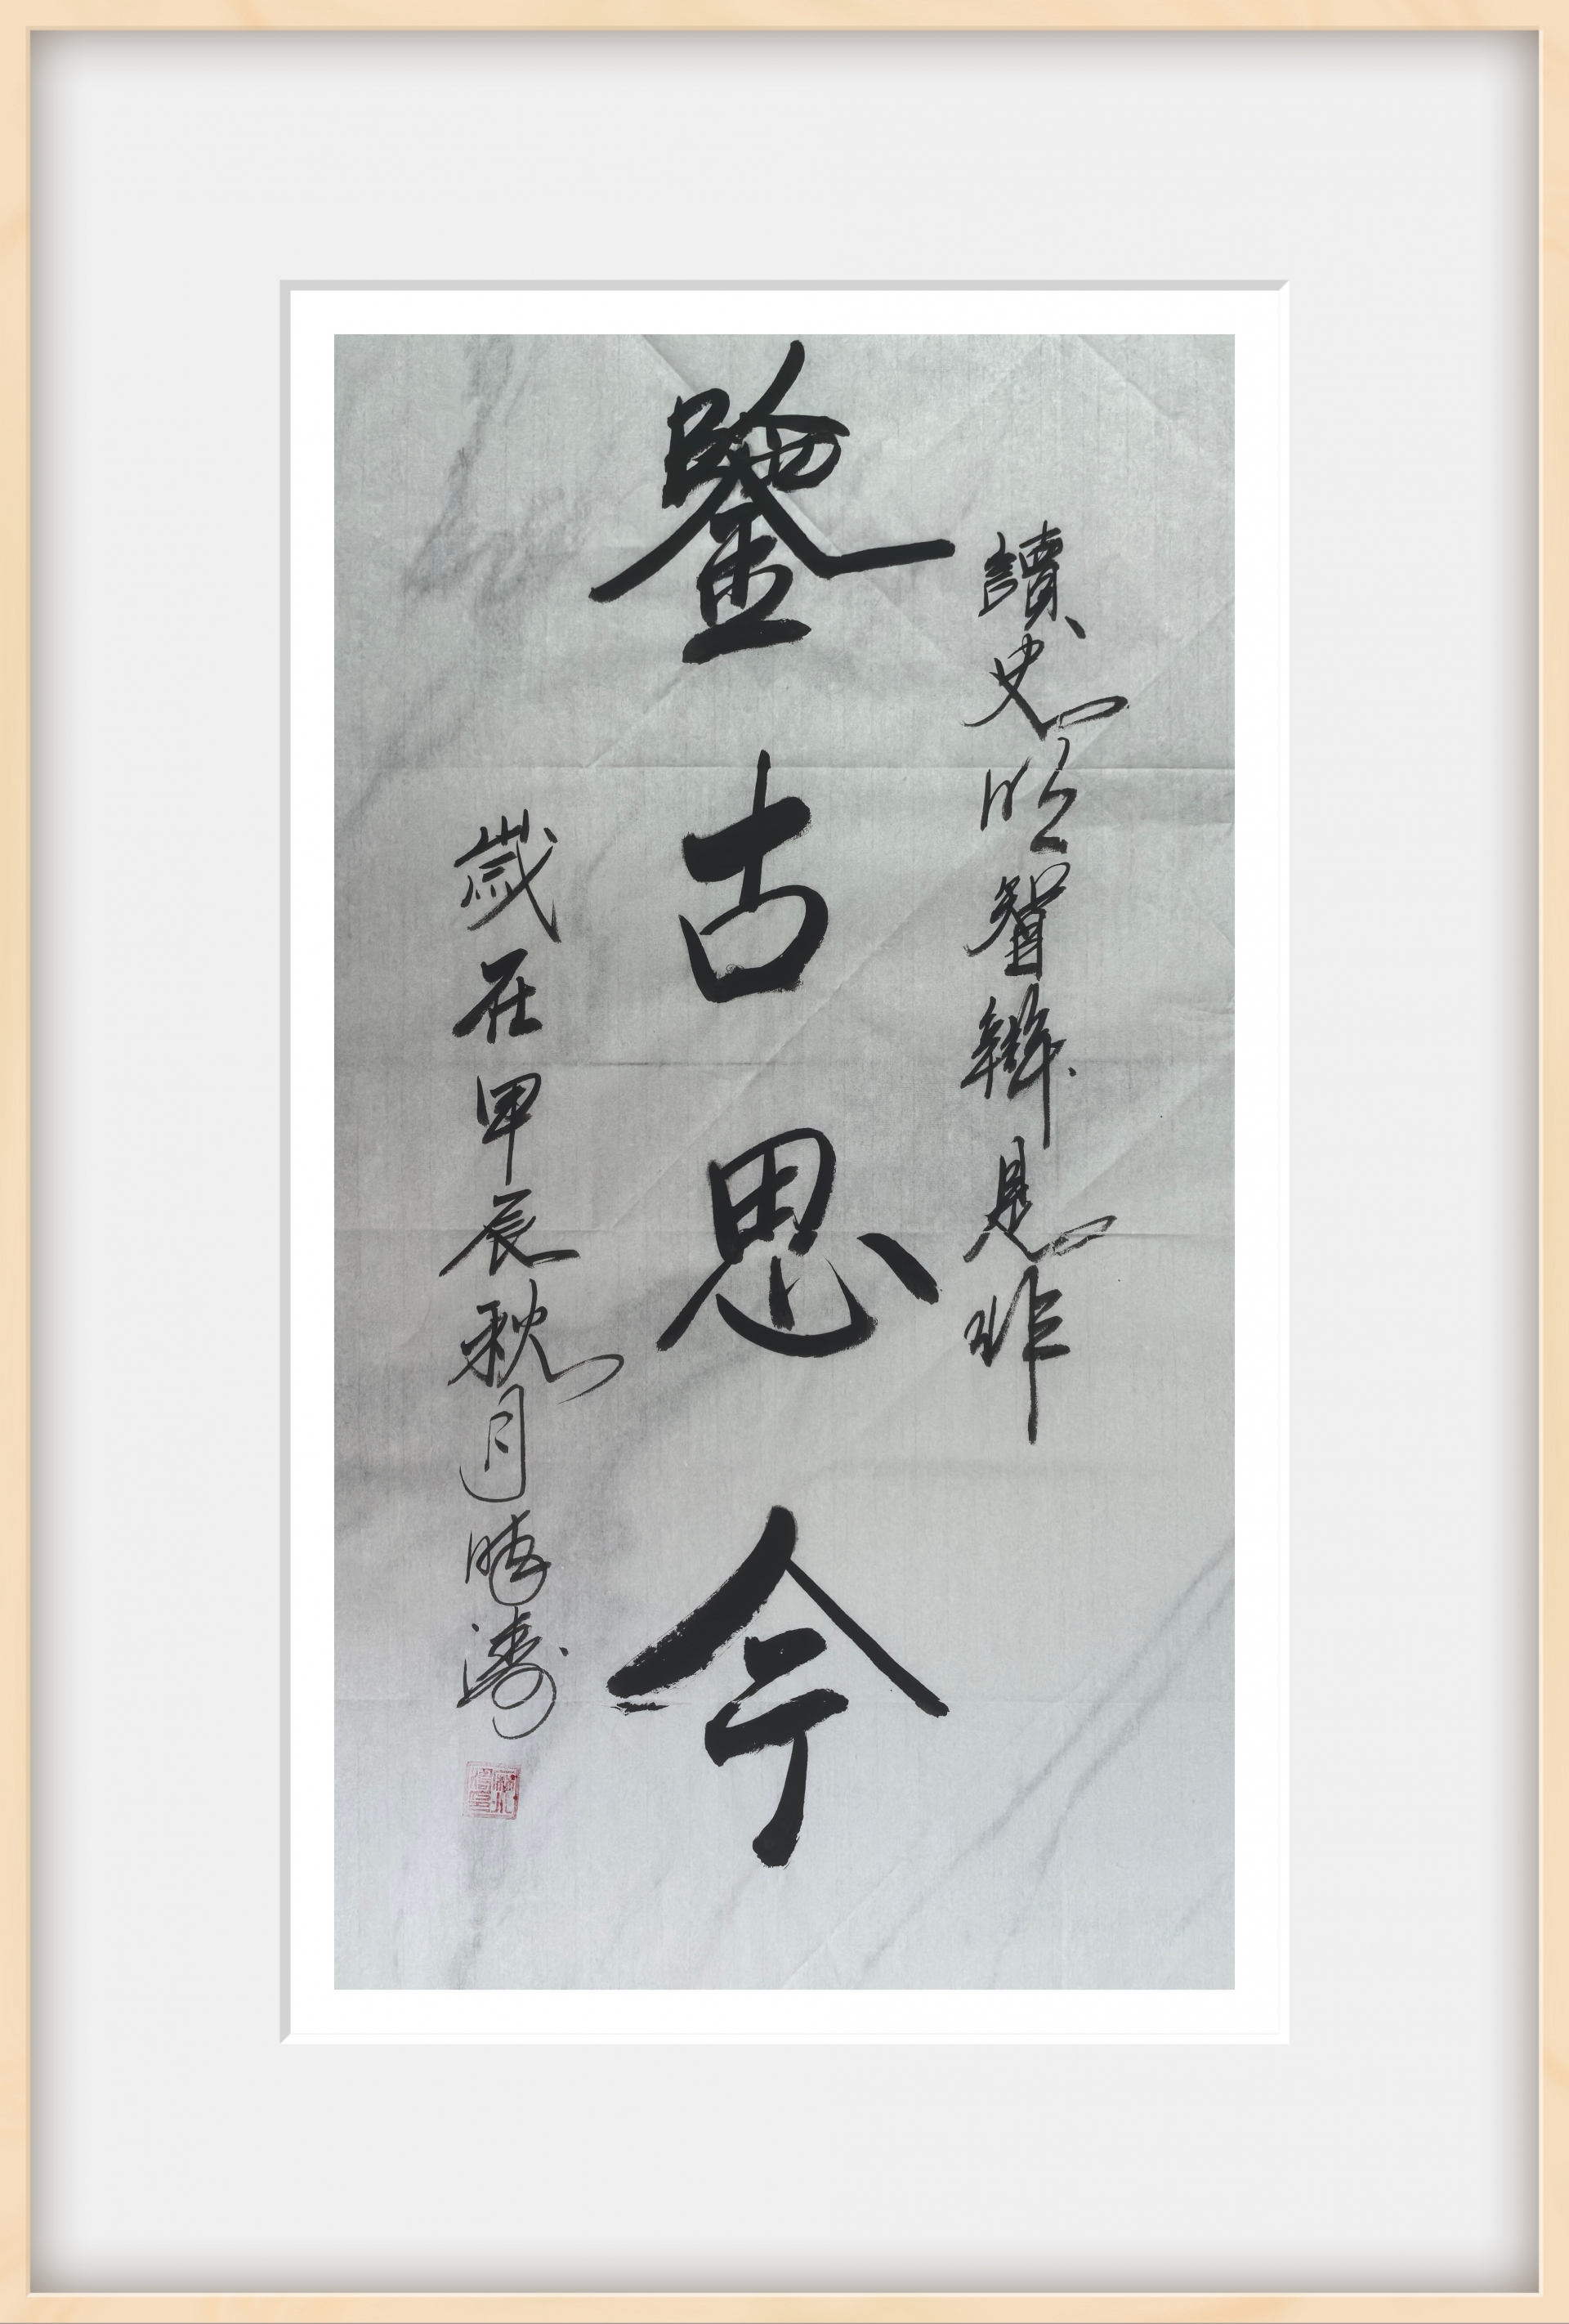 讀史明智辨是非
鑒古思今
歲在甲辰秋月濤